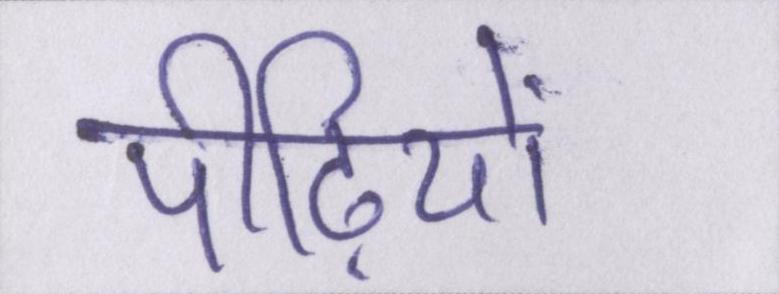 पीढ़ियों